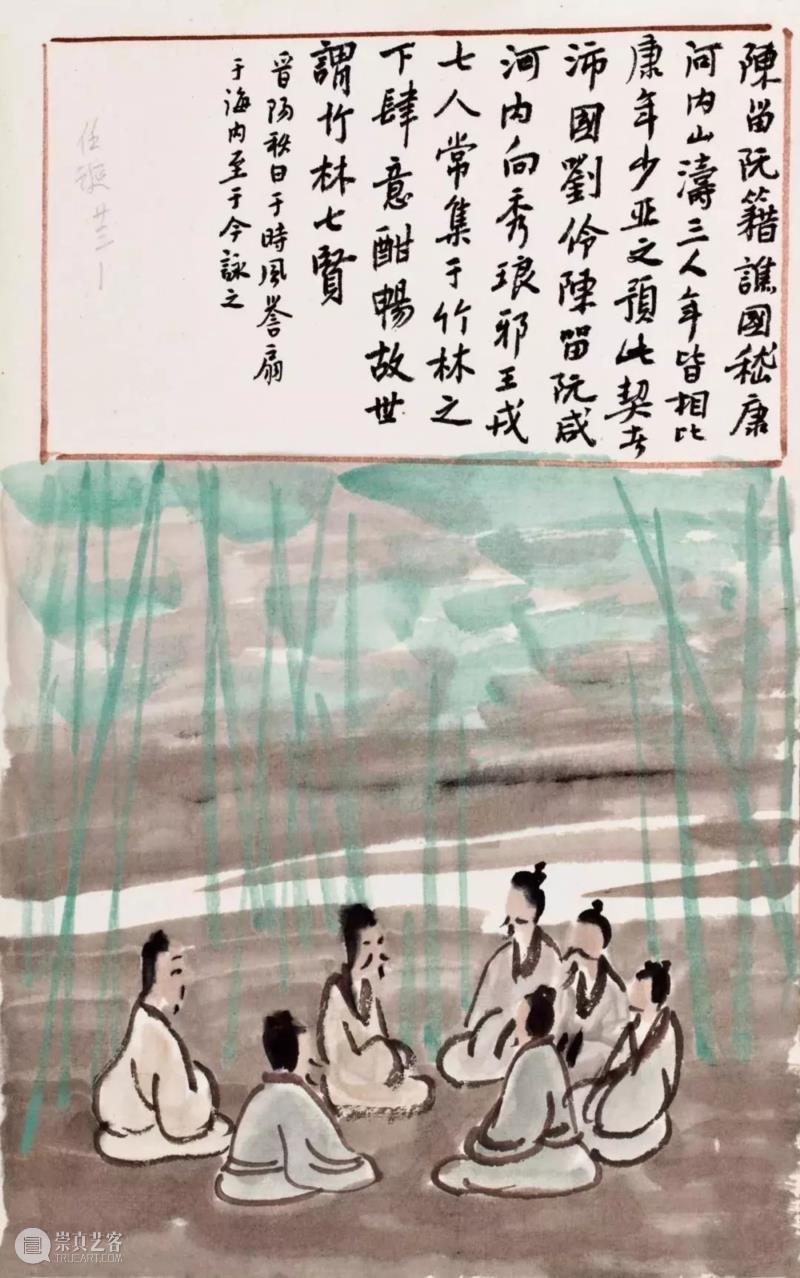 陳留阮籍譙國嵇康
河内山濤三人年皆相比
康年少亚之預此契者
沛國劉伶陳留阮咸
河内向秀琅邪王戎
七人常集于竹林之
下肆意酣暢故世
謂竹林七賢
晋陽秋曰于時風誉扇
于海内至于今詠之
崇真艺客
TRUEART.COM